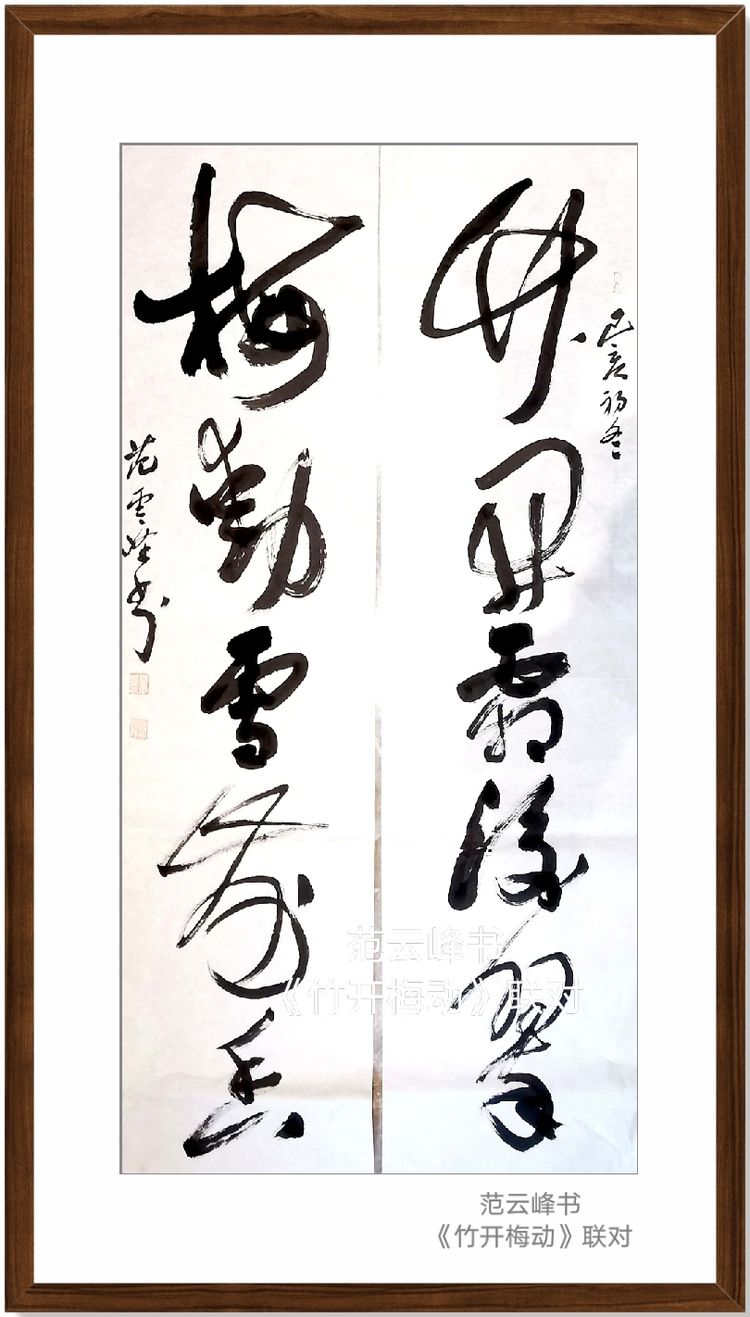 竹開霜後翠
己亥初冬
梅動雪前香
范雲峰書
范云峰书
《竹开梅动》联对
范云峰书
《竹开梅动》联对